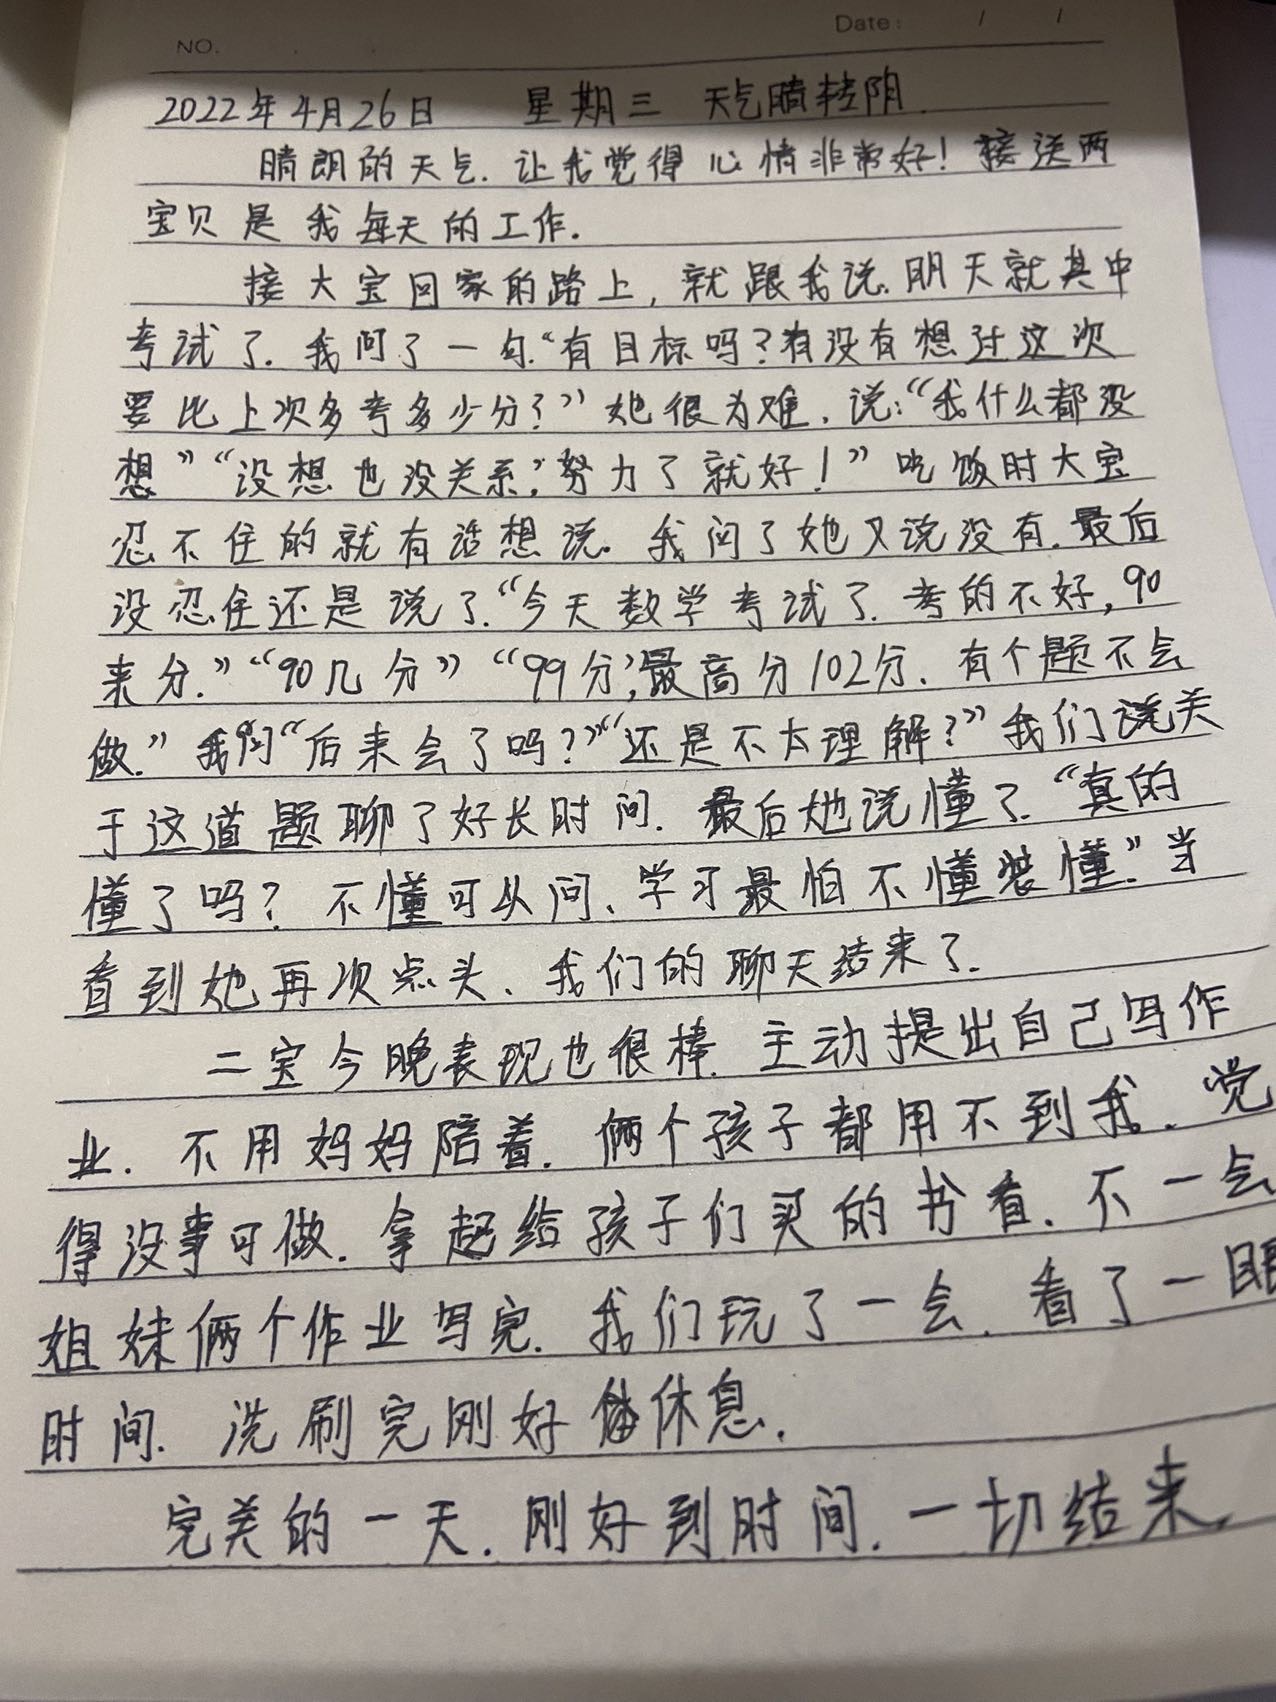 NO.
Date: / /
2022年4月26日 星期三 天气晴转阴.
晴朗的天气.让我觉得心情非常好!接送两
宝贝是我每天的工作.
接大宝回家的路上,就跟我说.明天就其中
考试了.我问了一句.“有目标吗?有没有想过这次
要比上次多考多少分?”她很为难.说:“我什么都没
想”“没想也没关系,”努力了就好!”吃饭时大宝
忍不住的就有话想说.我问了她又说没有.最后
没忍住还是说了.“今天数学考试了.考的不好,90
来分.”“90几分”“99分,最高分102分.有个题不会
做.”我问“后来会了吗?”“还是不太理解?”我们说关
于这道题聊了好长时间.最后她说懂了.“真的
懂了吗?不懂可以问、学习最怕不懂装懂.”当
看到她再次点头、我们的聊天结来了.
二宝今晚表现也很棒.主动提出自己写作
业.不用妈妈陪着.俩个孩子都用不到我.觉
得没事可做.拿起给孩子们买的书看.不一会
姐妹俩个作业写完.我们玩了一会.看了一眼
时间.洗刷完刚好休息.
完美的一天.刚好到时间.一切结来.